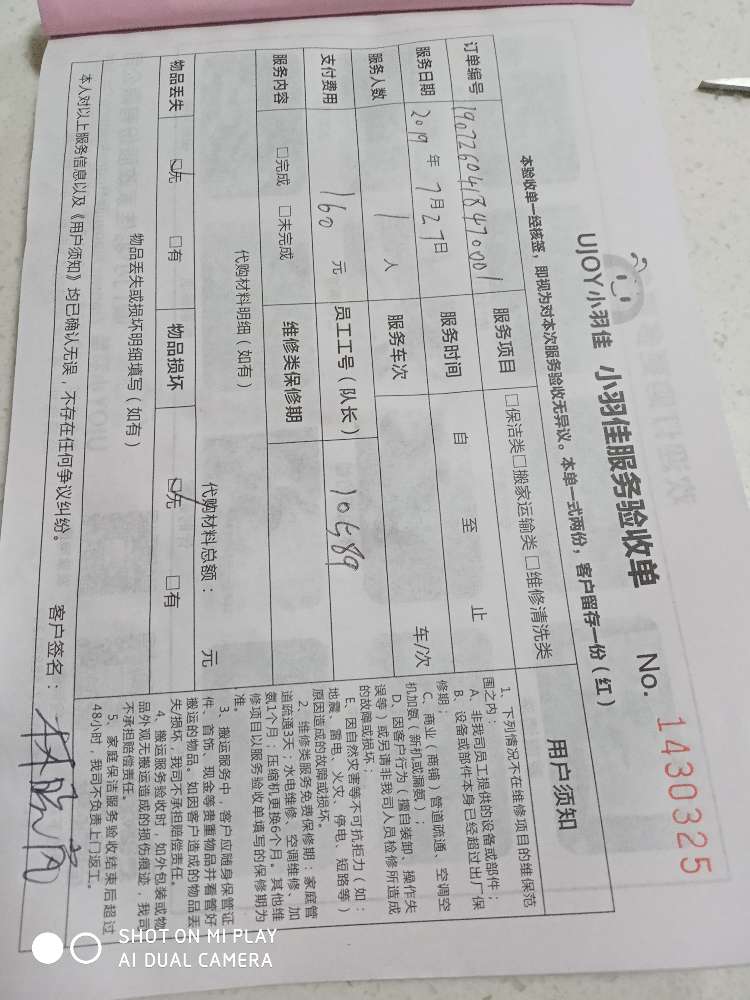 UJOY小羽佳 小羽佳服务验收单 No. 1430325
本验收单一经核签，即视为对本次服务验收无异议。本单一式两份，客户留存一份（红）
订单编号 1907260418470001 服务项目 □保洁类□搬家运输类 □维修清洗类
服务日期 2019 年 7月27日 服务时间 自 至 止
服务人数 1 人 服务车次 车/次
支付费用 160 元 员工工号（队长） 10589
服务内容 □完成 □未完成 维修类保修期
代购材料明细（如有）
代购材料总额： 元
物品丢失 ☑无 □有 物品损坏 ☑无 □有
物品丢失或损坏明细填写（如有）
本人对以上服务信息以及《用户须知》均已确认无误，不存在任何争议纠纷。 客户签名：
用户须知
1、下列情况不在维修项目的维保范
围之内：
A、非我司员工提供的设备或部件；
B、设备或部件本身已经超过出厂保
修期；
C、商业（商铺）管道疏通、空调空
机加氨（新机或漏氨）；
D、因客户行为（擅自装卸、操作失
误等）或另请非我司人员检修所造成
的故障或损坏；
E、因自然灾害等不可抗拒力（如：
地震、雷电、火灾、停电、短路等）
原因造成的故障或损坏。
2、维修类服务免费保修期：家庭管
道疏通3天；水电维修、空调维修、加
氨1个月；压缩机更换6个月。其他维
修项目以服务验收单填写的保修期为
准。
3、搬运服务中，客户应随身保管证
件、首饰、现金等贵重物品并看管好
搬运的物品。如因客户造成的物品丢
失/损坏，我司不承担赔偿责任。
4、搬运服务验收时，如外包装或物
品外观无搬运造成的损伤痕迹，我司
不承担赔偿责任。
5、家庭保洁服务验收结束后超过
48小时，我司不负责上门返工。
SHOT ON MI PLAY
AI DUAL CAMERA